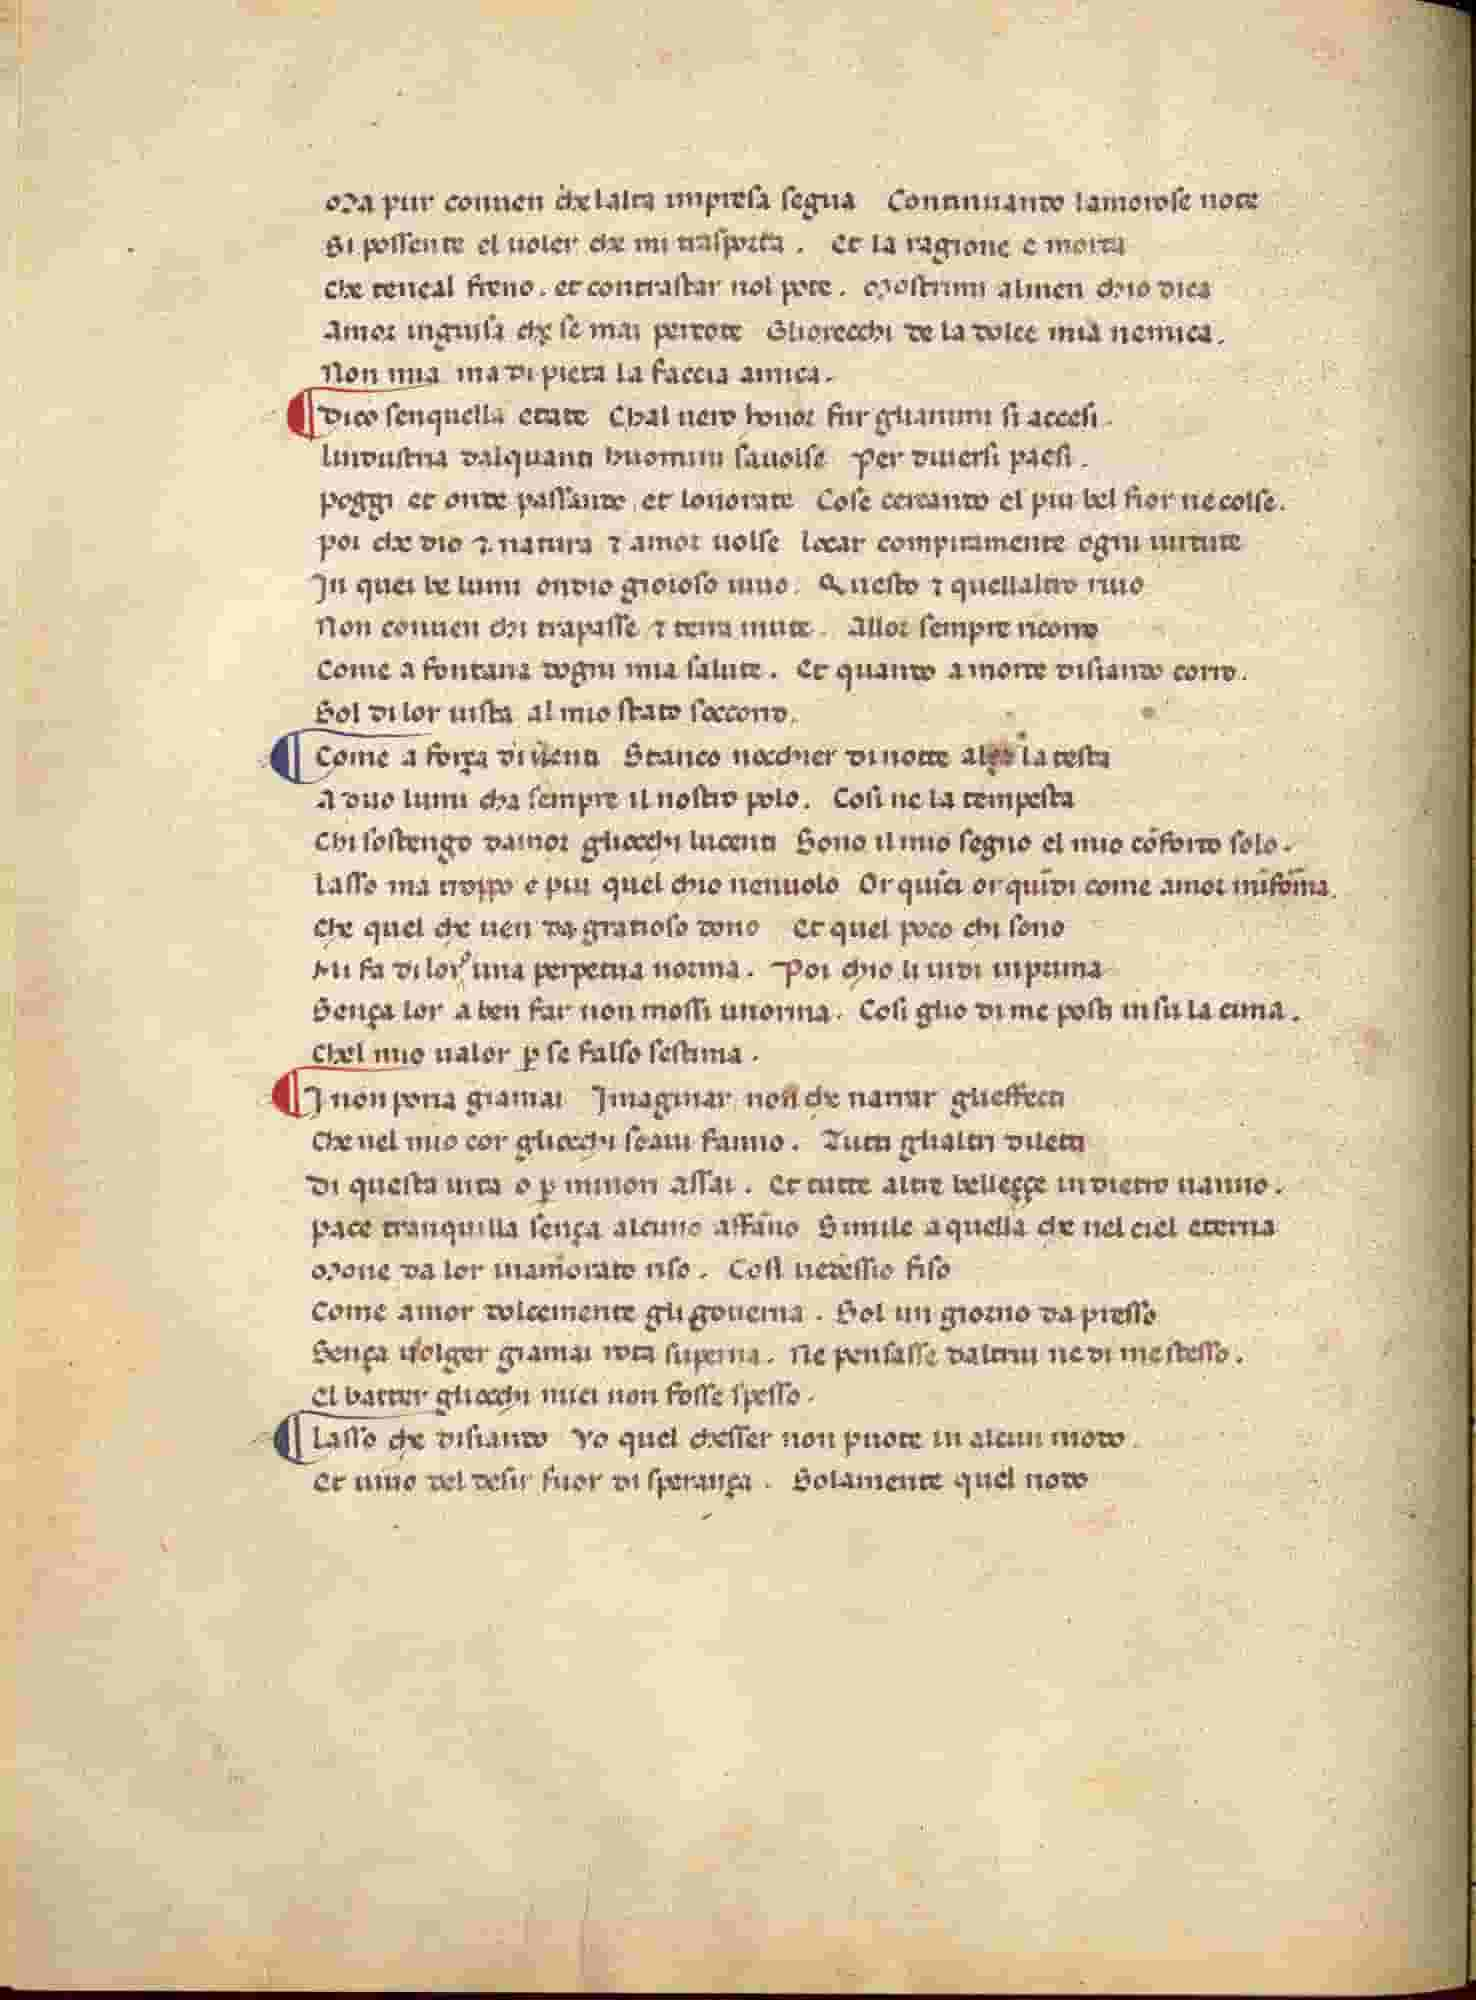 Ma pur conuen che lalta impresa segua Continuando lamorose note
Si possente el uoler che mi trasporta . Et la ragione e morta
Che tenea l freno . et contrastar nol pote . Mostrimi almen chio dica
Amor inguisa che se mai percote Gliorecchi de la dolce mia nemica .
Non mia ma di pieta la faccia amica .
Dico senquella etate Chal uero honor fur glianimi si accesi .
Lindustria dalquanti huomini sauolse Per diuersi paesi .
Poggi et onde passando . et lonorate Cose cercando el piu bel fior ne colse .
Poi che dio ⁊ natura ⁊ amor uolse Locar compitamente ogni uirtute
In quei be lumi ondio gioioso uiuo . Questo ⁊ quellaltro riuo
Non conuen chi trapasse ⁊ terra mute . Allor sempre ricorro
Come a fontana dogni mia salute . Et quando a morte disiando corro .
Sol di lor uista al mio stato soccorro .
Come a força di uenti Stanco nocchier di notte alça la testa
A duo lumi cha sempre il nostro polo . Cosi ne la tempesta
Chi sostengo damor gliocchi lucenti Sono il mio segno el mio cōforto solo .
Lasso ma troppo e piu quel chio nenuolo Or quīci or quīdi come amor mīforma .
Che quel che uen da gratioso dono Et quel poco chi sono
Mi fa di lor una perpetua norma . Poi chio li uidi inprima
Sença lor a ben far non mossi unorma . Cosi glio di me posti in su la cima .
Chel mio ualor ꝑ se falso sestima .
I non poria giamai Imaginar non che narrar glieffecti
Che nel mio cor gliocchi soaui fanno . Tutti glialtri diletti
Di questa uita o ꝑ minori assai . Et tutte altre belleççe indietro uanno .
Pace tranquilla sença alcuno affāno Simile a quella che nel ciel eterna
Moue da lor inamorato riso . Cosi uedessio fiso
Come amor dolcemente gli gouerna . Sol un giorno da presso
Sença uolger giamai rota superna . Ne pensasse daltrui ne di me stesso .
El batter gliocchi miei non fosse spesso .
Lasso che disiando Vo quel chesser non puote in alcun modo .
Et uiuo del desir fuor di sperança . Solamente quel nodo